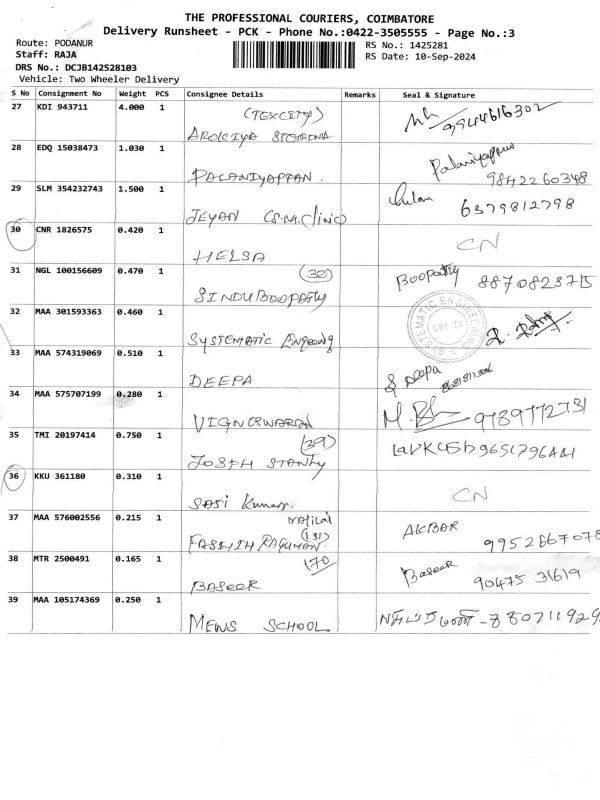 THE PROFESSIONAL COURIERS, COIMBATORE
Delivery Runsheet - PCK - Phone No.:0422-3505555 - Page No.:3
Route: PODANUR
RS No.: 1425281
Staff: RAJA
RS Date: 10-Sep-2024
DRS No.: DCJB142528103
Vehicle: Two Wheeler Delivery
S No Consignment No Weight PCS Consignee Details Remarks Seal & Signature
27 KDI 943711 4.000 1 (TEXCITY) 9944616302
AROKIYA
28 EDQ 15038473 1.030 1 Palaniyappan
PALANIYAPPAN. 9842260348
29 SLM 354232743 1.500 1
JEYAN CS.M.Clinic) 6379812798
30 CNR 1826575 0.420 1 CN
HELSA
31 NGL 100156609 0.470 1 (30) Boopathy 8870823715
SINDU BOOPATHY
32 MAA 301593363 0.460 1 SYSTEMATIC ENGINEERING
SYSTEMATIC CBE-23
33 MAA 574319069 0.510 1 Deepa
DEEPA
34 MAA 575707199 0.280 1 9789772731
VIGNESWARAN
35 TMI 20197414 0.750 1 (39)
JOSEPH STANLY
36 KKU 361180 0.310 1 CN
SASI Kumar.
37 MAA 576002556 0.215 1 (131) AKBAR
RAGUMAN. 9952667078
38 MTR 2500491 0.165 1 170 Baseer 90475 31619
BASEER
39 MAA 105174369 0.250 1
MEWS SCHOOL